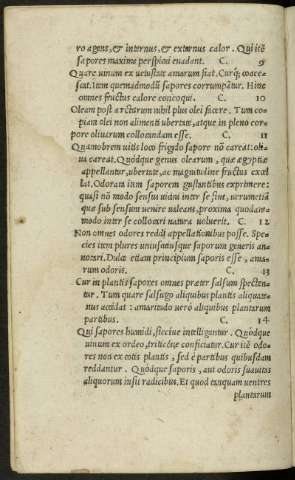 ro agens, & internus, & externus calor. Qui itē
sapores maxime perspicui euadant. C. 9
Quare uinum ex uetustate amarum fiat. Curq; coace-
scat. Item quemadmodū sapores corrumpātur. Hinc
omnes fructus calore concoqui. C. 10
Oleam post arcturum nihil plus olei facere. Tum co-
piam olei non alimenti ubertate, atque in pleno cor-
pore oliuarum collocandam esse. C. 11
Quamobrem uitis loco frigido sapore nō careat: oli-
ua careat. Quódque genus olearum, quæ ægyptiæ
appellantur, ubertate, ac magnitudine fructus excel
lat. Odoratu item saporem gustantibus exprimere:
quasi nō modo sensu uiani inter se sint, uerumetiā
quæ sub sensum uenire ualeant, proxima quodam-
modo inter se collocari natura uoluerit. C. 12
Non omnes odores reddi appellationibus posse. Spe-
cies item plures uniuscuiusque saporum generis an-
notari. Dulce etiam principium saporis esse, ama-
rum odoris. C. 13
Cur in plantis sapores omnes præter salsum specten-
tur. Tum quare salsugo aliquibus plantis aliquate-
nus accidat: amaritudo uerò aliquibus plantarum
partibus. C. 14
Qui sapores humidi, siccíue intelligantur. Quódque
uinum ex ordeo, triticóque conficiatur. Cur itē odo-
res non ex totis plantis, sed è partibus quibusdam
reddantur. Quódque saporis, aut odoris suauitas
aliquorum insit radicibus. Et quod cuiquam uentres
plantarum